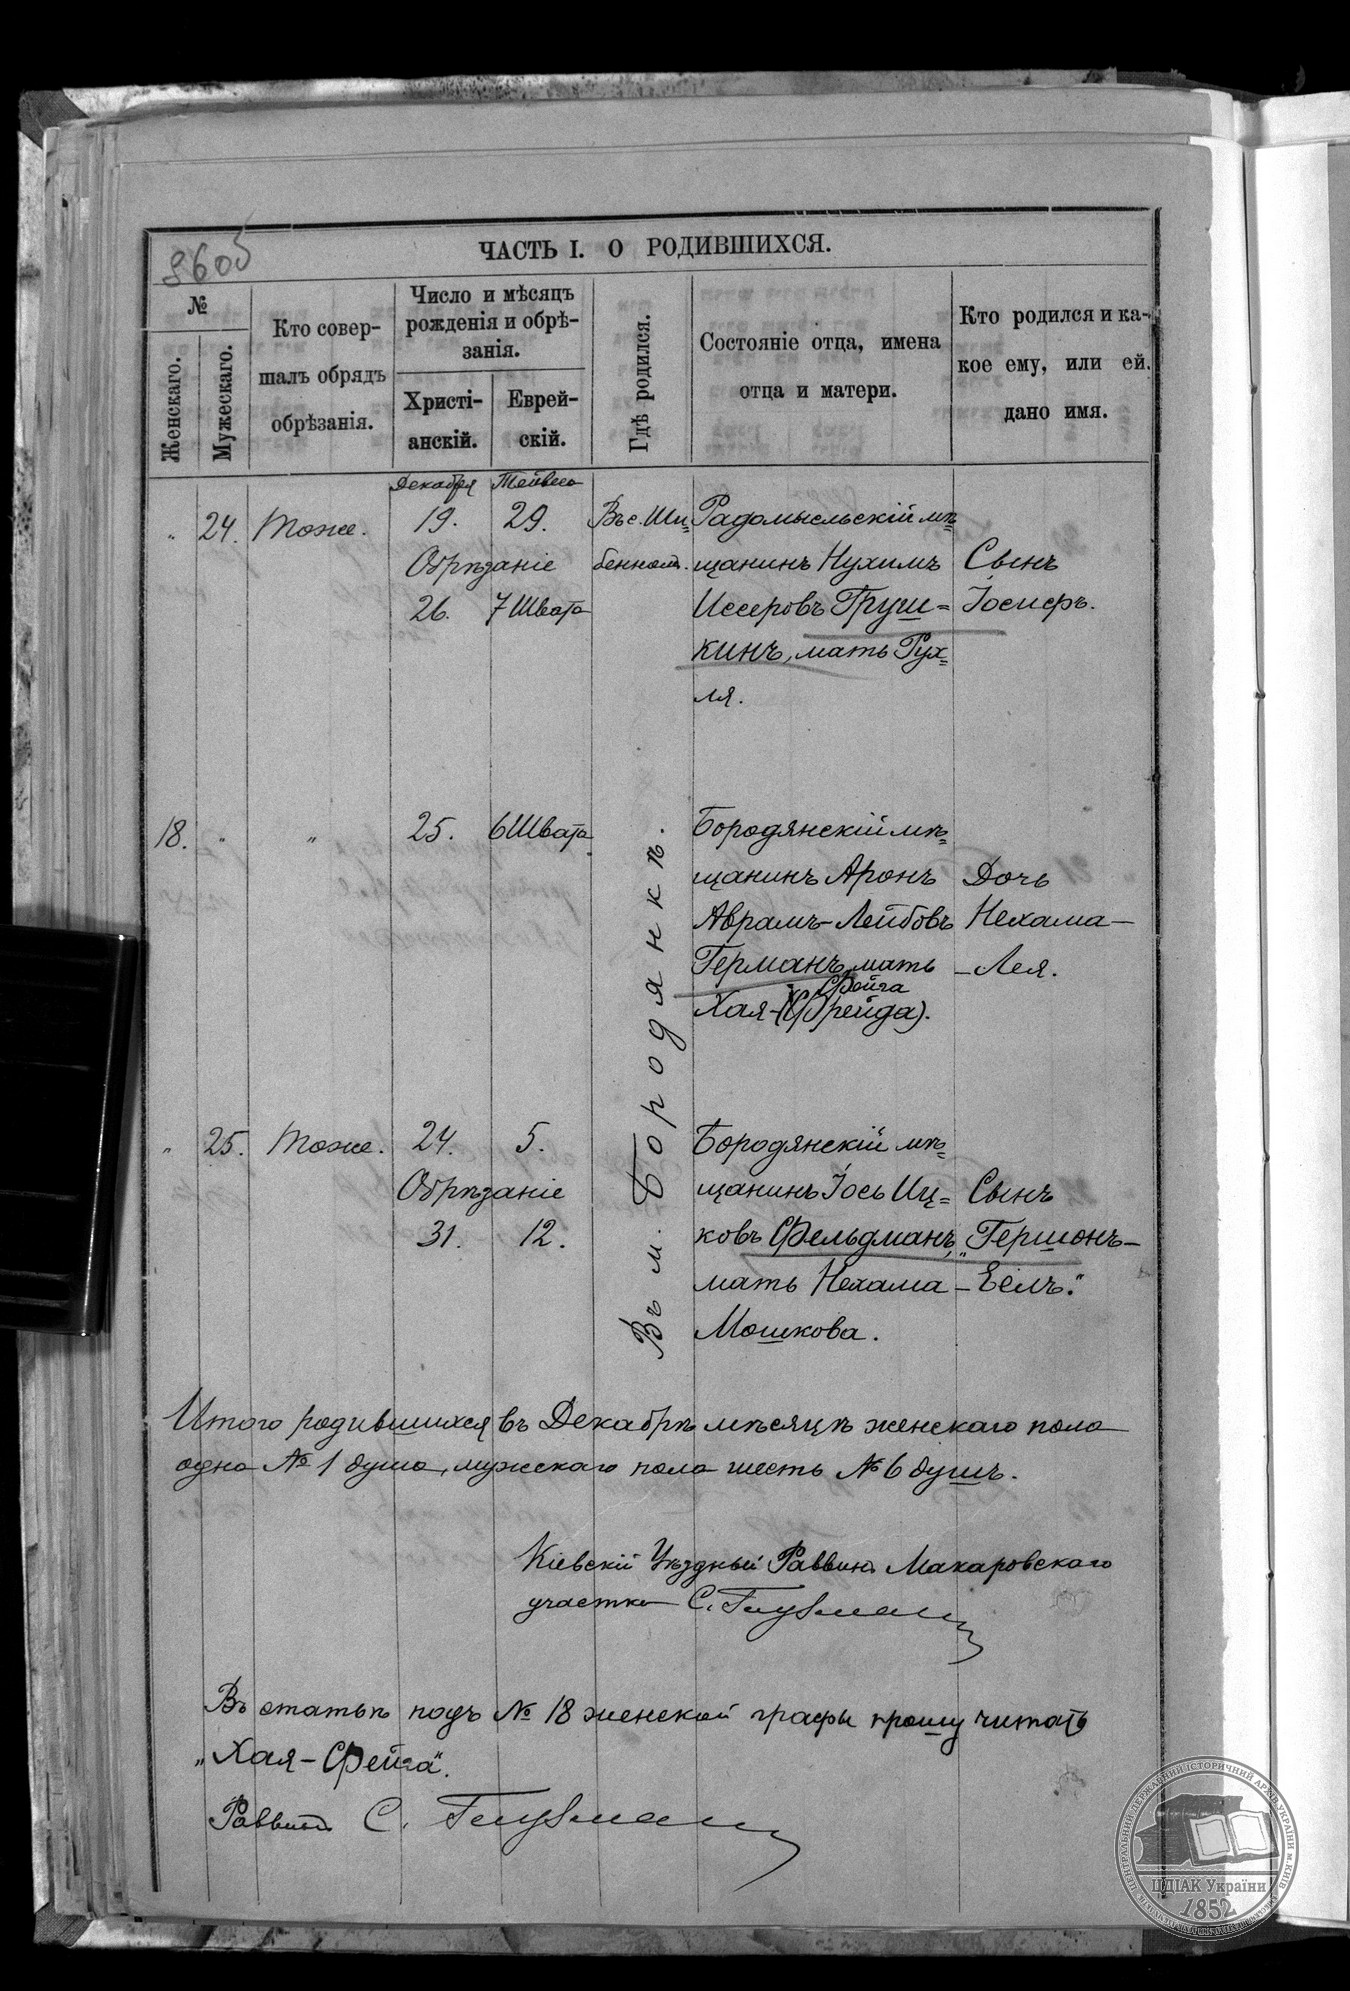 860б
ЧАСТЬ I. О РОДИВШИХСЯ.
№
Женскаго.
Мужескаго.
Кто совер-
шалъ обрядъ
обрѣзанія.
Число и мѣсяцъ
рожденія и обрѣ-
занія.
Христі-
анскій.
Еврей-
скій.
Гдѣ родился.
Состояніе отца, имена
отца и матери.
Кто родился и ка-
кое ему, или ей,
дано имя.
Декабря Тейвеса
" 24. Тоже. 19. 29. Въ с. Ши= Радомысльскій мѣ=
Обрѣзаніе бенномъ. щанинъ Нухимъ Сынъ
26. 7 Швата Иссеровъ Груш= Іосифъ.
кинъ, мать Рух=
ля.
18. " " 25. 6 Швата Бородянскій мѣ=
щанинъ Аронъ Дочь
Аврамъ-Лейбовъ Нехама-
Германъ, мать -Лея.
Фейга
Хая-(Фрейда).
Въ м. Бородянкѣ.
" 25. Тоже. 24. 5. Бородянскій мѣ=
Обрѣзаніе щанинъ Іось Иц= Сынъ
31. 12. ковъ Фельдманъ, "Гершонъ-
мать Нехама -Еслъ."
Мошкова.
Итого родившихся въ Декабрѣ мѣсяцѣ женскаго пола
одна № 1 душа, мужскаго пола шесть № 6 душъ.
Кіевскій Уѣздный Раввинъ Макаровскаго
участка С. Глузманъ
Въ статьѣ подъ № 18 женской графы прошу читать
"Хая-Фейга".
Раввинъ С. Глузманъ
ЦЕНТРАЛЬНИЙ ДЕРЖАВНИЙ ІСТОРИЧНИЙ АРХІВ УКРАЇНИ М. КИЇВ
ЦДІАК України
1852